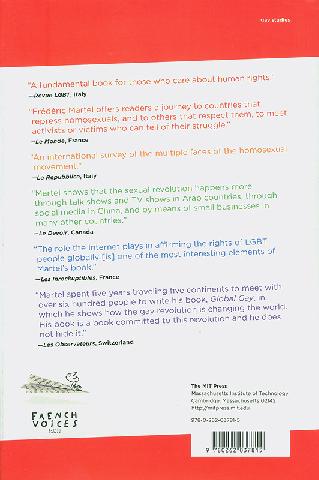 gay studies
"A fundamental book for those who care about human rights."
—Devon LGBT, Italy
"Frédéric Martel offers readers a journey to countries that
repress homosexuals, and to others that respect them, to meet
activists or victims who can tell of their struggle."
—Le Monde, France
"An international survey of the multiple faces of the homosexual
movement."
—La Repubblica, Italy
"Martel shows that the sexual revolution happens more
through talk shows and TV shows in Arab countries, through
social media in China, and by means of small businesses in
many other countries."
—Le Devoir, Canada
"The role the internet plays in affirming the rights of LGBT
people globally [is] one of the most interesting elements of
martel's book."
—Les Inrockuptibles, France
"Martel spent five years traveling five continents to meet with
over six hundred people to write his book, Global Gay, in
which he shows how the gay revolution is changing the world.
His book is a book committed to this revolution and he does
not hide it."
—Les Observateurs, Switzerland
FRENCH
VOICES
The MIT Press
Massachusetts Institute of Technology
Cambridge, Massachusetts 02142
http://mitpress.mit.edu